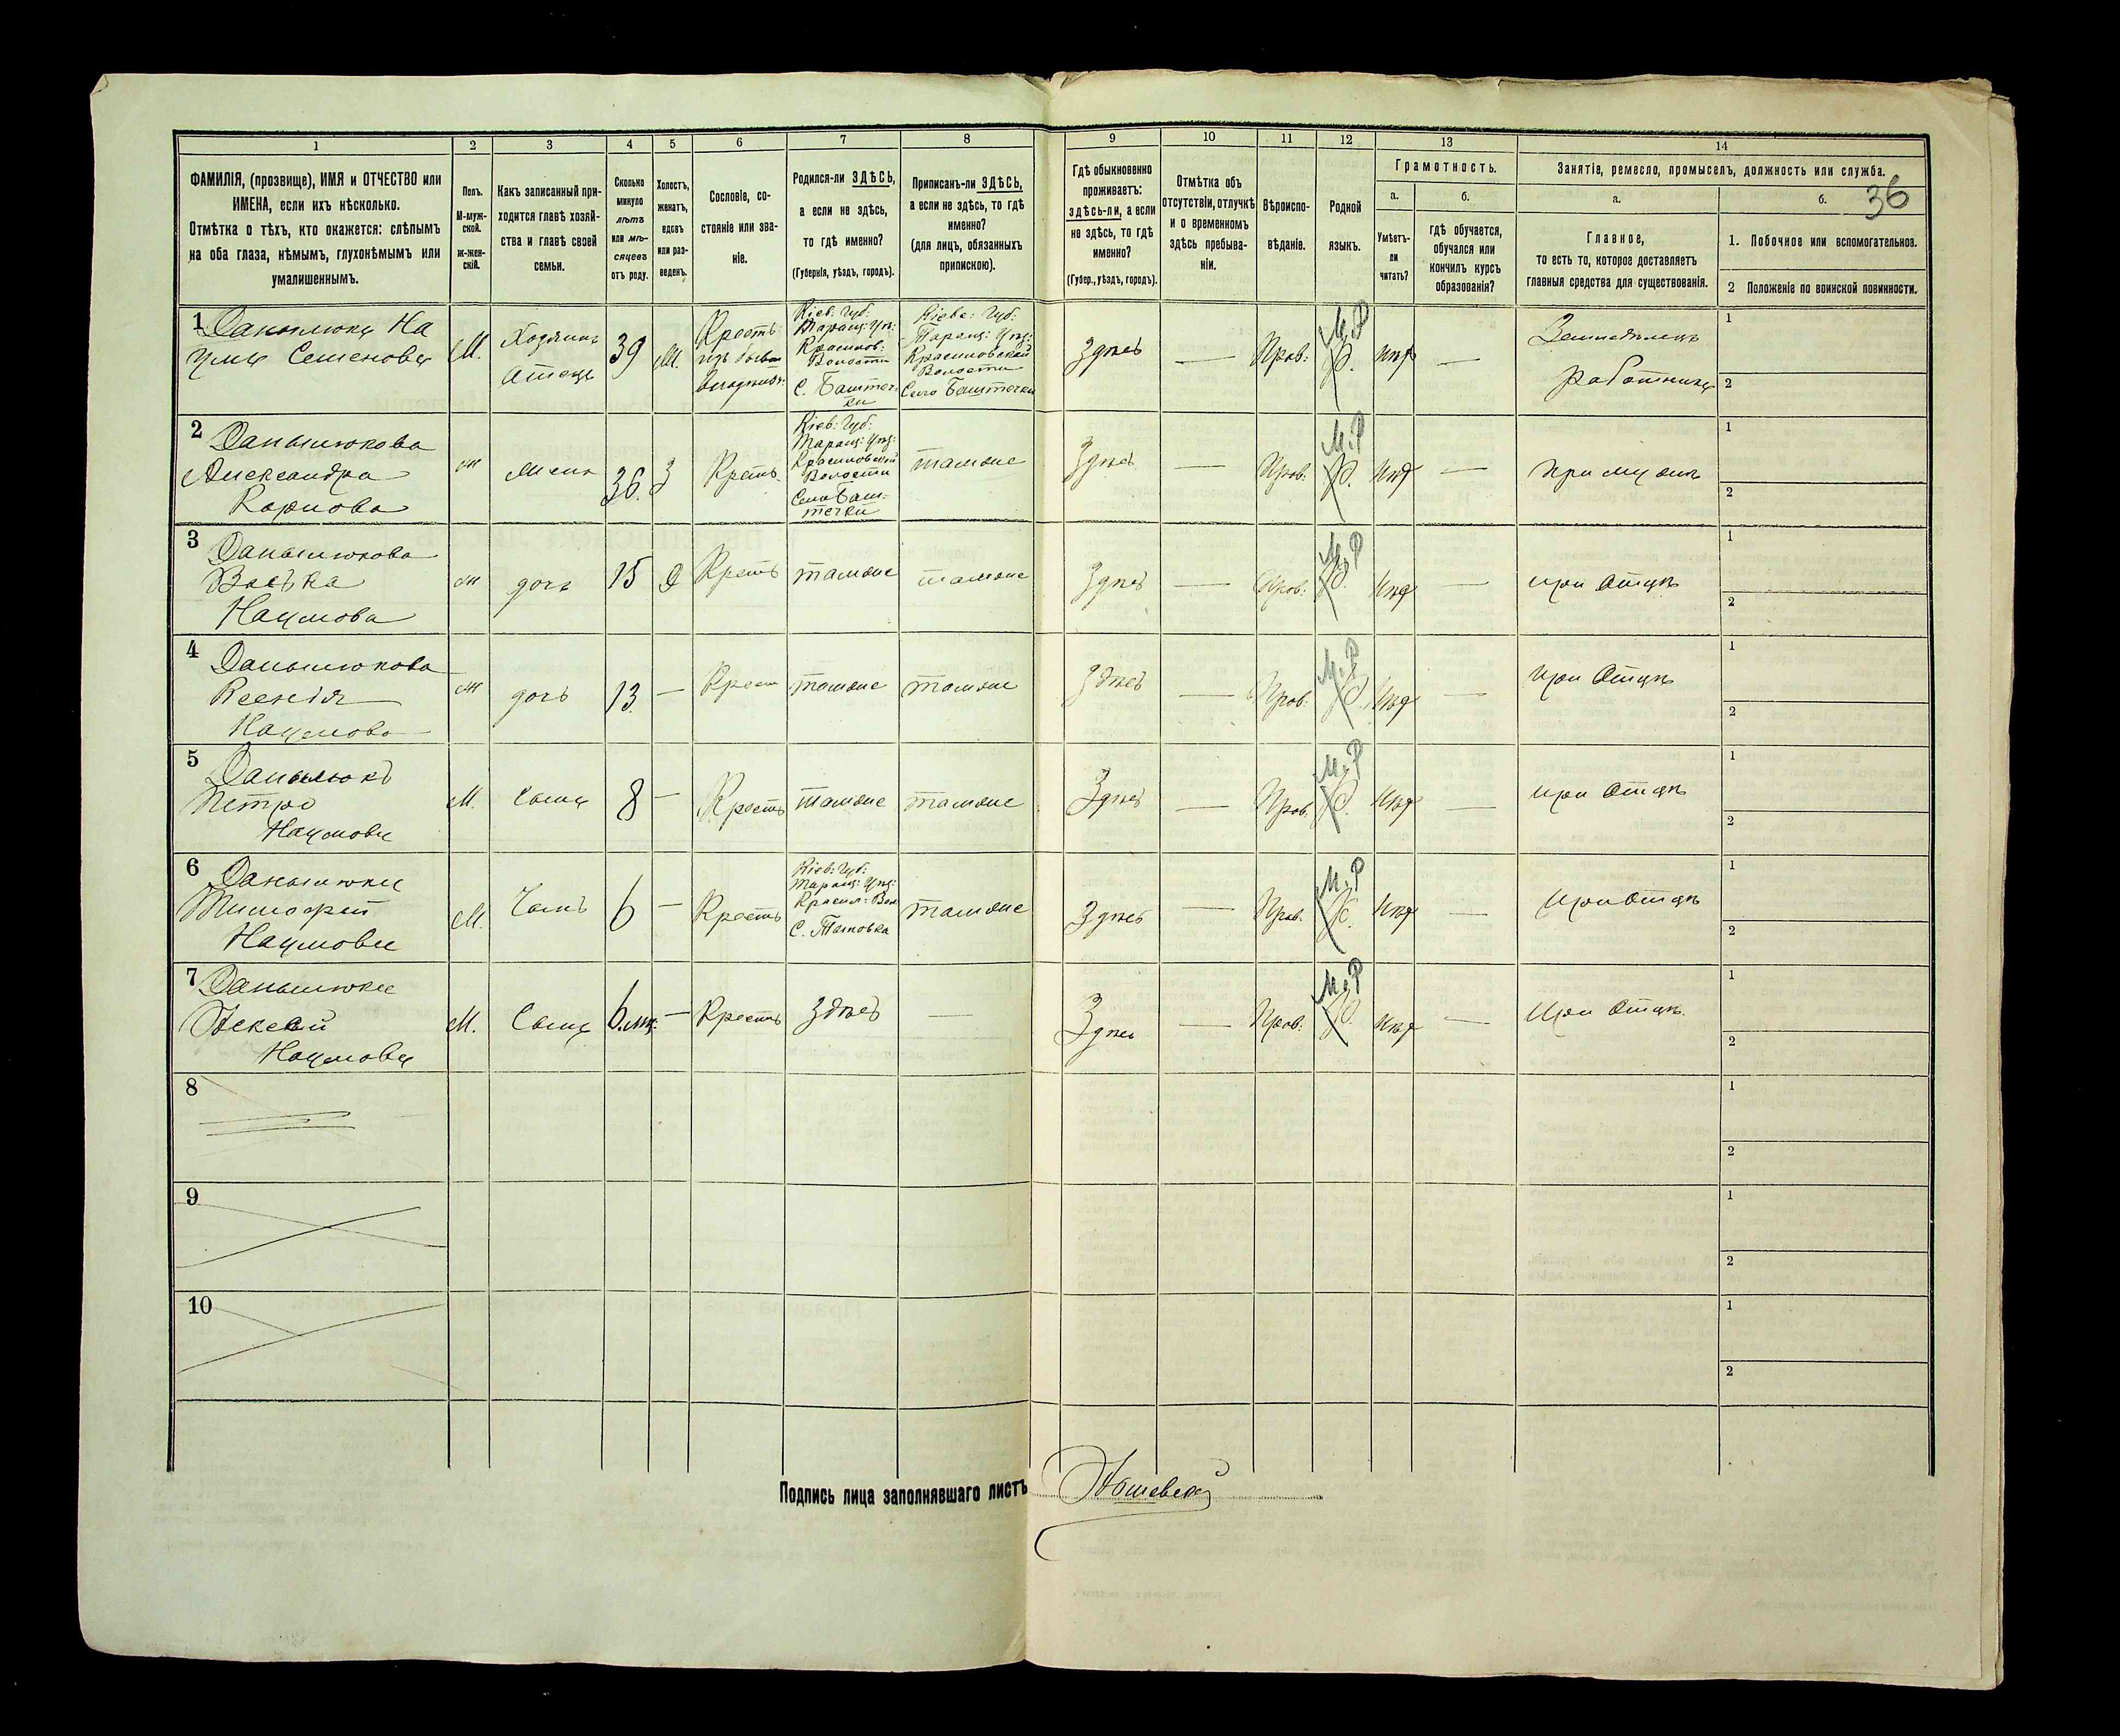 1
2
3
4
5
6
7
8
9
10
11
12
13
14
ФАМИЛІЯ, (прозвище), ИМЯ и ОТЧЕСТВО или
ИМЕНА, если ихъ нѣсколько.
Отмѣтка о тѣхъ, кто окажется: слѣпымъ
на оба глаза, нѣмымъ, глухонѣмымъ или
умалишеннымъ.
Полъ.
М-муж-
ской.
Ж-жен-
скій.
Какъ записанный при-
ходится главѣ хозяй-
ства и главѣ своей
семьи.
Сколько
минуло
лѣтъ
или мѣ-
сяцевъ
отъ роду.
Холостъ,
женатъ,
вдовъ
или раз-
веденъ.
Сословіе, со-
стояніе или зва-
ніе.
Родился-ли ЗДѢСЬ,
а если не здѣсь,
то гдѣ именно?
(Губернія, уѣздъ, городъ).
Приписанъ-ли ЗДѢСЬ,
а если не здѣсь, то гдѣ
именно?
(для лицъ, обязанныхъ
припискою).
Гдѣ обыкновенно
проживаетъ:
здѣсь-ли, а если
не здѣсь, то гдѣ
именно?
(Губер., уѣздъ, городъ).
Отмѣтка объ
отсутствіи, отлучкѣ
и о временномъ
здѣсь пребыва-
ніи.
Вѣроиспо-
вѣданіе.
Родной
языкъ.
Грамотность.
а.
Умѣетъ-
ли
читать?
б.
гдѣ обучается,
обучался или
кончилъ курсъ
образованія?
Занятія, ремесло, промыселъ, должность или служба.
36
а.
Главное,
то есть то, которое доставляетъ
главныя средства для существованія.
б.
1. Побочное или вспомогательное.
2 Положеніе по воинской повинности.
1 Данылюкъ На
умъ Семеновъ
М.
Хозяинъ
Отецъ
39
Крестъ
Кіев: Губ:
Таращ: Уѣз:
Волости
С. Баштеч-
ки
Кіевс: Губ:
Таращ: Уѣз:
Красиловской
Волости
Село Баштечки
Здѣсь
—
Прав:
М.Р
Нѣт
—
Земледѣлецъ
работникъ
1
2
2 Данылюкова
Александра
Карпова
ж
жена
36.
З
Крест
Кіев: Губ:
Таращ: Уѣз:
Красиловской
Волости
Село Баш-
течки
тамже
Здѣсь
—
Прав:
М.Р
Нѣт
—
При мужѣ
1
2
3 Данылюкова
Васька
Наумова
ж
дочь
15
Д
Крест
тамже
тамже
Здѣсь
—
Прав:
М.Р
Нѣт
—
при Отцѣ
1
2
4 Данылюкова
Ксенія
Наумова
ж
дочь
13
—
Крест
тамже
тамже
Здѣсь
—
Прав:
М.Р
Нѣт
—
при Отцѣ
1
2
5 Данылюкъ
Петро
Наумовъ
М.
Сынъ
8
—
Крест
тамже
тамже
Здѣсь
—
Прав.
М.Р
Нѣт
—
при Отцѣ
1
2
6 Данылюкъ
Тимофей
Наумовъ
М.
Сынъ
6
—
Крест
Кіев: Губ:
Таращ: Уѣз:
Красил: Вол
тамже
Здѣсь
—
Прав.
М.Р
Нѣт
—
При Отцѣ
1
2
7 Данылюкъ
Наумовъ
М.
Сынъ
6. мѣ:
—
Крест
Здѣсь
—
Здѣсь
—
Прав.
М.Р
Нѣт
—
При Отцѣ.
1
2
8
1
2
9
1
2
10
1
2
Подпись лица заполнявшаго листъ